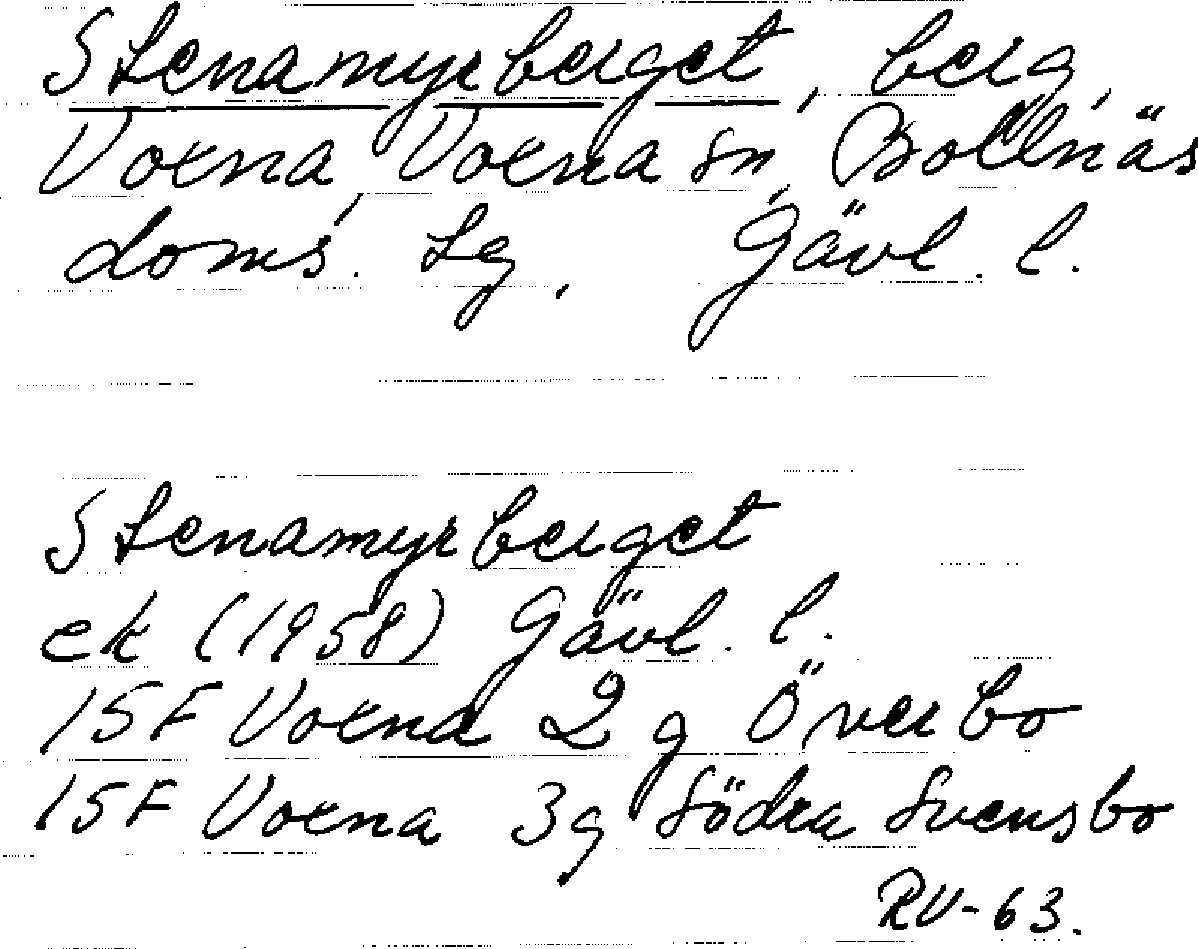 Stenamyrberget, berg,
Voxna, Voxna sn, Bollnäs
doms. tg, Gävl. l.
Stenamyrberget
ek (1958) Gävl. l.
15F Voxna 2 g Överbo
15F Voxna 3g Södra Svensbo
RV-63.